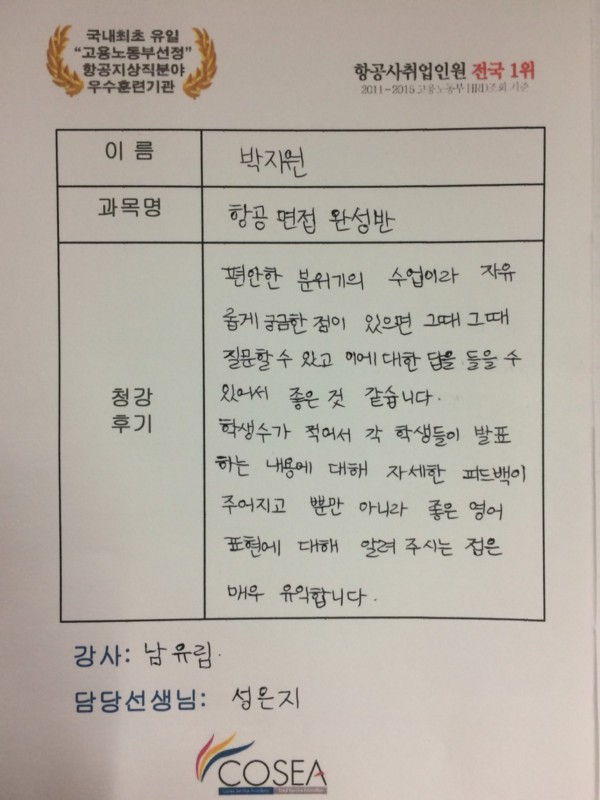 국내최초 유일
“고용노동부선정”
항공지상직분야
우수훈련기관
항공사취업인원 전국 1위
2011~2015 고용노동부 HRD조회 기준
이 름
박지원
과목명
항공 면접 완성반
청강
후기
편안한 분위기의 수업이라 자유
롭게 궁금한 점이 있으면 그때 그때
질문할 수 있고 이에 대한 답을 들을 수
있어서 좋은 것 같습니다.
학생수가 적어서 각 학생들이 발표
하는 내용에 대해 자세한 피드백이
주어지고 뿐만 아니라 좋은 영어
표현에 대해 알려 주시는 점은
매우 유익합니다.
강사: 남유립.
담당선생님: 성은지
COSEA